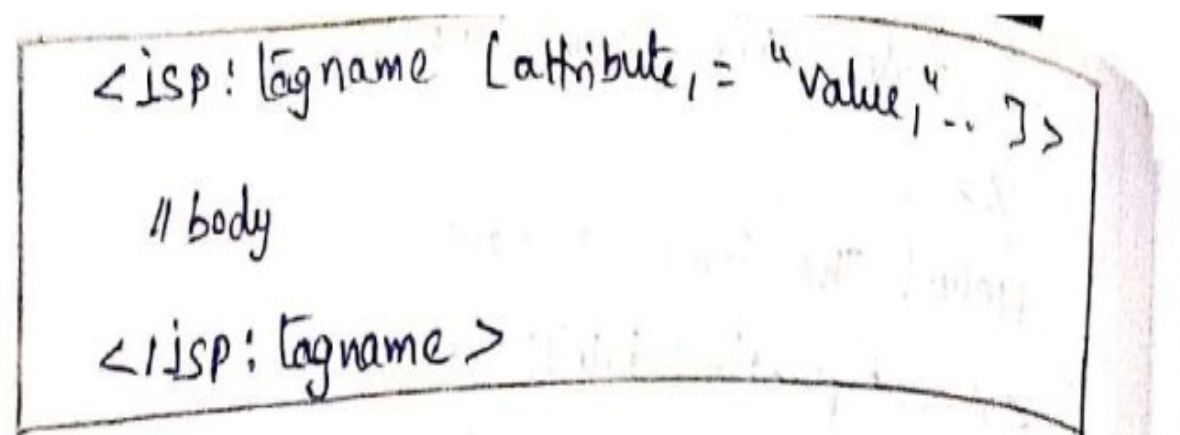 <jsp: tagname [attribute1 = "value1".. ]>
// body
</jsp: tagname>